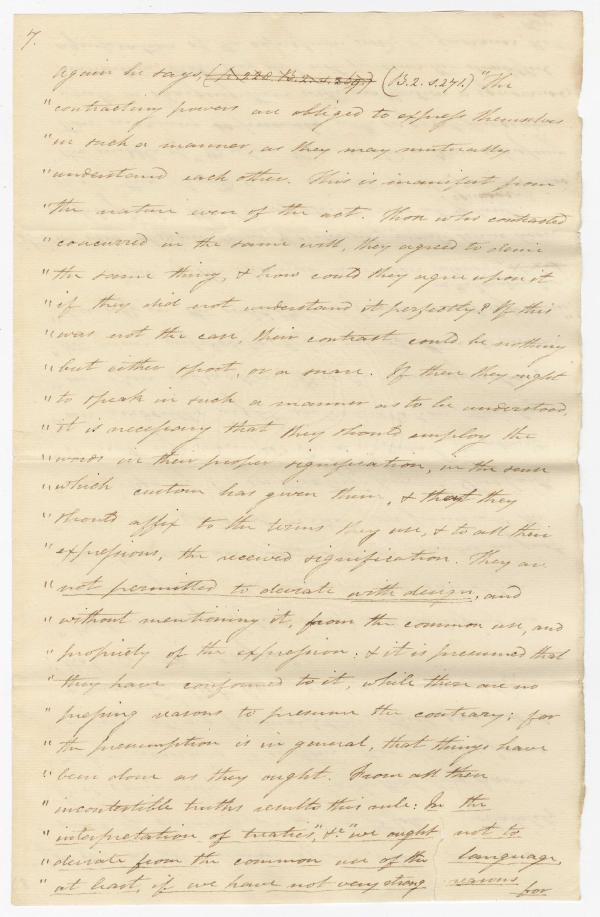 7.
Again he says, (p. 228. B. 2. s. 269.) (B. 2. s. 271.) "The
"contracting powers are obliged to express themselves
"in such a manner, as they may mutually
"understand each other. This is manifest from
"the nature even of the act. Those who contracted
"concurred in the same will, they agreed to desire
"the same thing, & how could they agree upon it
"if they did not understand it perfectly? If this
"was not the case, their contract could be nothing
"but either sport, or a snare. If then they ought
"to speak in such a manner as to be understood,
"it is necessary that they should employ the
"words in their proper signification, in the sense
"which custom has given them, & that they
"should affix to the terms they use, & to all their
"expressions, the received signification. They are
"not permitted to deviate with design, and
"without mentioning it, from the common use, and
"propriety of the expression: & it is presumed that
"they have conformed to it, while there are no
"pressing reasons to presume the contrary; for
"the presumption is in general, that things have
"been done as they ought. From all these
"incontestible truths results this rule: In the
"interpretation of treaties", &c "we ought not to
"deviate from the common use of the language,
"at least, if we have not very strong reasons
for